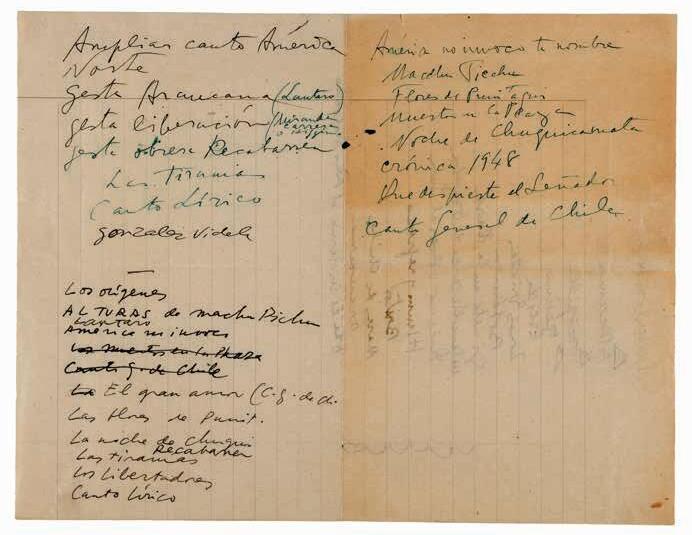 Ampliar canto América
Norte
gesta Araucana (Lautaro)
gesta liberación (Miranda
Carrera
gesta obrera Recabarren
Las Tiranías
Canto Lírico
gonzalez Videla
Los orígenes
ALTURAS de machu Pichu
Lautaro
América no invoco
Los muertos en la Plaza
Canto G. de Chile
El gran amor (C.g. de ch.
Las flores de Punit.
La noche de Chuqui
Recabarren
Las tiranías
Los Libertadores
Canto Lírico
América no invoco tu nombre
Macchu Picchu
Flores de Punitaqui
Muertos en la Plaza
Noche de Chuquicamata
Crónica 1948
Que despierte el Leñador
Canto General de Chile